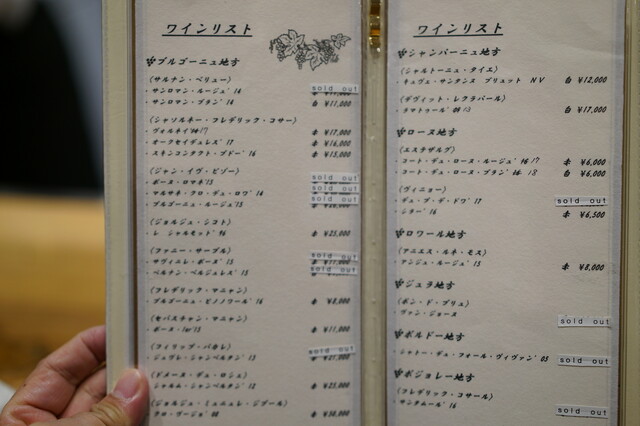 ワインリスト
ブルゴーニュ地方
(サルナン・ベリュー)
・サンロマン・ルージュ'14 sold out
・サンロマン・ブラン'14 白 ¥11,000
(シャソルネー・フレデリック・コサー)
・ヴォルネイ 17 赤 ¥17,000
・オークセイデュレス'17 赤 ¥16,000
・スキンコンタクト・ブドー'16 赤 ¥13,000
(ジャン・イヴ・ビゾー)
・ボーヌ・ロマネ'13 sold out
・マルサネ・クロ・デュ・ロワ'14 sold out
・ブルゴーニュ・ルージュ'13 sold out
(ジョルジュ・シコト)
・レ シャルセット'96 赤 ¥25,000
(ファニー・サーブル)
・サヴィニレ・ボーヌ'15 sold out
・ベルナン・ベルジュレス'15 sold out
(フレデリック・マニャン)
・ブルゴーニュ・ピノノワール'16 赤 ¥8,000
(セバスチャン・マニャン)
・ボーヌ・1er'15 赤 ¥11,000
(フィリップ・パカレ)
・ジュヴレ・シャンベルタン'13 sold out ¥21,000
(ドメーヌ・デュ・ロシェ)
・シャルム・シャンベルタン'12 赤 ¥25,000
(ジョルジュ・ミュニュレ・ジブール)
・クロ・ブージョ'08 赤 ¥50,000
ワインリスト
シャンパーニュ地方
(シャルトーニュ・タイエ)
・キュヴェ・サンタンヌ ブリュット NV 白 ¥12,000
(デヴィット・レクラパール)
・ラマトゥール' 13 白 ¥17,000
ローヌ地方
(エステザルグ)
・コート・デュ・ローヌ・ルージュ' 17 赤 ¥6,000
・コート・デュ・ローヌ・ブラン' 18 白 ¥6,000
(ヴィニョー)
・デュ・ブ・デ・ドワ'17 sold out
・ショー'16 赤 ¥6,500
ロワール地方
(アニエス・ルネ・モス)
・アンジュ・ルージュ'15 赤 ¥8,000
ジュラ地方
(ボン・ド・ブリュ)
・ヴァン・ジョーヌ sold out
ボルドー地方
・シャトー・デュ・フォール・ヴィヴァン'05 sold out
ボジョレー地方
(フレデリック・コサール)
・サンタムール'16 sold out